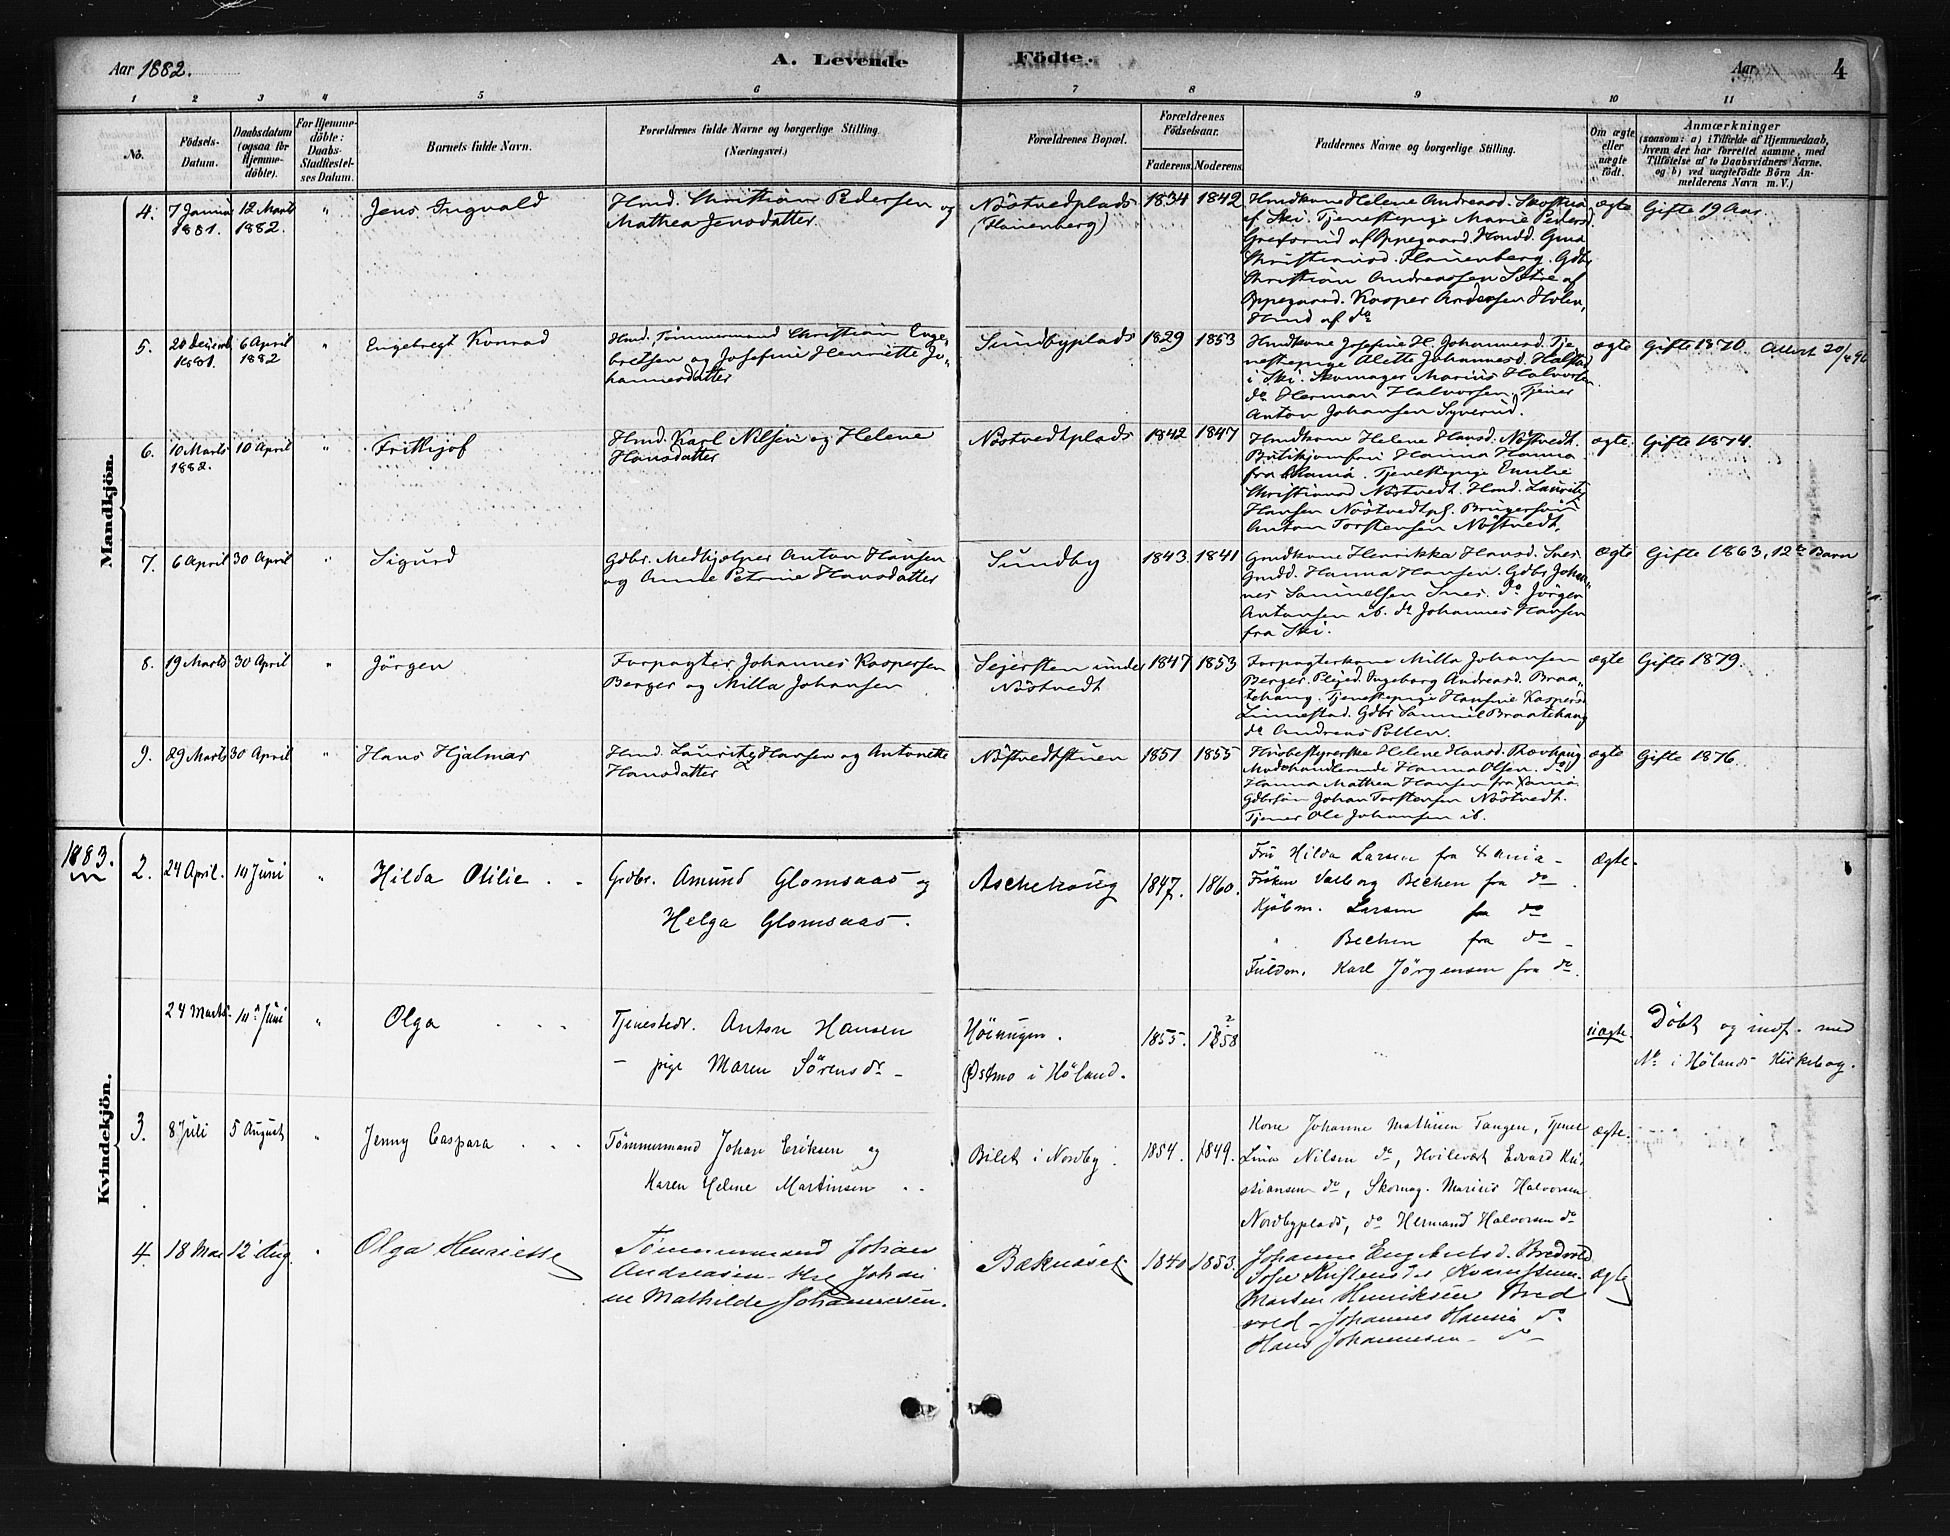 Aar 1882. A. Levende Födte. Aar 4
1 2 3 4 5 6 7 8 9 10 11
No.
Födsels-Datum.
Daabsdatum (ogsaa for Hjemme-döbte).
For Hjemme-döbte: Daabs-Stadfæstel-ses Datum.
Barnets fulde Navn.
Forældrenes fulde Navne og borgerlige Stilling.
(Næringsvei.)
Forældrenes Bopæl.
Forældrenes Födselsaar.
Faderens. Moderens.
Faddernes Navne og borgerlige Stilling.
Om ægte eller uægte födt.
Anmærkninger
(saasom: a) i Tilfælde af Hjemmedaab,
hvem der har forrettet samme, med
Tilföielse af to Daabsvidners Navne,
og b) ved uægtefödte Börn An-
melderens Navn m. V.)
Mandkjön.
4. 7 Janua 1881. 12 Marts 1882. " Jens Ingvald
Hmd. Christian Pedersen og
Mathea Jensdatter.
Nöstvedplads
(Hauenberg)
1834 1842
Hmdkone Helene Andreasd.
af Ski. Tjenestepige Marie Pedersd.
Greverud af Oppegaard.
Christiansd. Hauenberg. Gdbr
Christian Andreassen Sætre af
Oppegaard. Kasper Andersen Holen,
Hmd af do
ægte Gifte 19 Aar.
5. 20 Decemb 1881. 6 April 1882 " Engebregt Konrad
Hmd. Tömmermand Christian Enge-
bretsen og Josefine Henriette Jo-
hannesdatter
Sundbyplads 1829 1853
Hmdkone Josefine H. Johannesd. Tje
nestepige Alette Johannesd. Halstad
i Ski. Skomager Marius Halvorsen
do Herman Halvorsen, Tjener
Anton Johansen Syverud.
ægte Gifte 1870. Attest 20/4 96
6. 10 Marts 1882. 10 April " Frithjof
Hmd. Karl Nilsen og Helene
Hansdatter
Nöstvedtplads 1842 1847
Hmdkone Helene Hansd. Nöstvedt.
Butikjomfru Hanna Hanna
fra Xania. Tjenestepige Emilie
Christiansd Nöstvedt. Hmd. Lauritz
Hansen Nöstvedtpl. Brugersön
Anton Torstensen Nöstvedt.
ægte. Gifte 1874.
7. 6 April 30 April " Sigurd
Gdbr. Medhjelper Anton Hansen
og Anne Petrine Hansdatter
Sundby 1843. 1841
Gmdkone Henrikka Hansd. Snes.
Gmdd. Hanna Hansen. Gdbr Johan-
nes Samuelsen Snes. do Jörgen
Antonsen ib. do Johannes Hansen
fra Ski.
Ægte Gifte 1863, 12te Barn
8. 19 Marts 30 April " Jörgen
Forpagter Johannes Kaspersen
Berger og Milla Johansen
Sejersten under
Nöstvedt
1847 1853
Forpagterkone Milla Johansen
Berger. Plejed. Ingeborg Andreasd. Braa-
tehaug. Tjenestepige Hansine Kaspersd
Linnestad. Gdbr Samuel Braatehaug
do Andreas Pollen.
ægte Gifte 1879.
9. 29 Marts 30 April " Hans Hjalmar
Hmd. Lauritz Hansen og Antonette
Hansdatter
Nöstvedtstuen 1851 1855
Husbestyrerske Helene Hansd. Ravhaug.
Modehandlerinde Hanna Olsen. do
Hanna Mathea Hansen fra Xania.
Gdbrsön Johan Torstensen Nöstvedt.
Tjener Ole Johansen ib.
ægte Gifte 1876.
1883.
Kvindekjön.
2. 24 April. 14 Juni " Hilda Otilie
Grdbr. Amund Glomsaas og
Helga Glomsaas.
Aschehoug 1847. 1860.
Fru Hilda Larsen fra Xania
Fröken Valborg Bechen fra do
Kjöbm. Larsen fra do
" Bechen fra do
Fuldm. Karl Jörgensen fra do.
Ægte.
24 Marts. 14 Juni " Olga
Tjenestedr. Anton Hansen
- pige Maren Sörensdr
Höiungen.
Østmo i Høland.
1855. 1858
uægte. Döbt og indf. med
No i Hølands Kirkebog.
3. 8 Juli 5 August " Jenny Caspara
Tömmermand Johan Eriksen og
Karen Helene Martinsen
Bilet i Nordby. 1854. 1849.
Kone Johanne Mathisen Tangen, Tjener
Lina Nilsen do, Hvilevært Edvard Kri
stiansen do, Skomag. Marius Halvorsen
Nordbyplads, do Hermand Halvorsen do
ægte.
4. 18 Mai 12 Aug. " Olga Henriette
Tömmermand Johan
Andreasen Johan
ne Mathilde Johannesen.
Bæknæset 1840 1853.
Johanne Engebretsd. Bredvold
Sofie Kristensd.
Morten Henriksen Bred
vold - Johannes Hansen do
Hans Johannesen - do
ægte